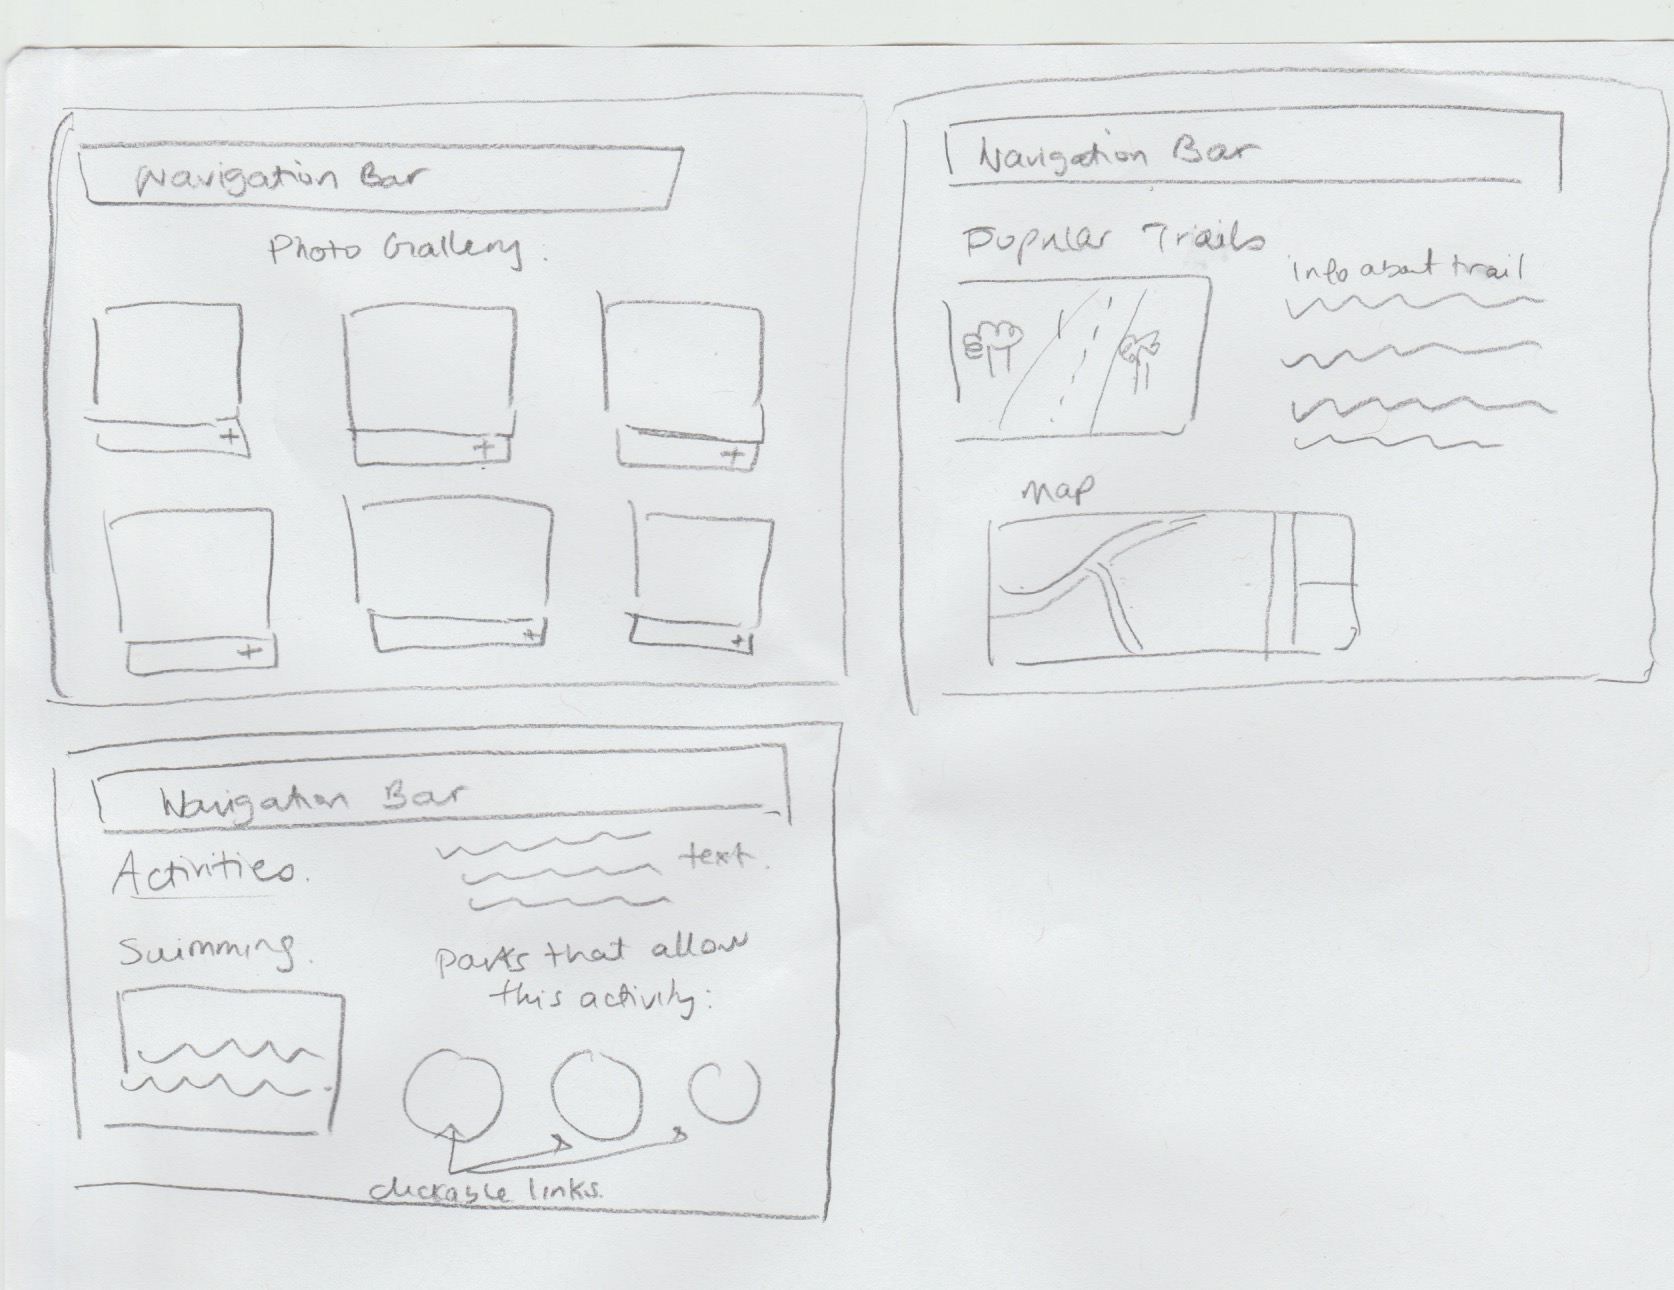 Navigation Bar
Photo Gallery.
+
+
+
+
+
+
Navigation Bar
Popular Trails
info about trail
map
Navigation Bar
Activities.
text.
Swimming.
parks that allow
this activity:
clickable links.